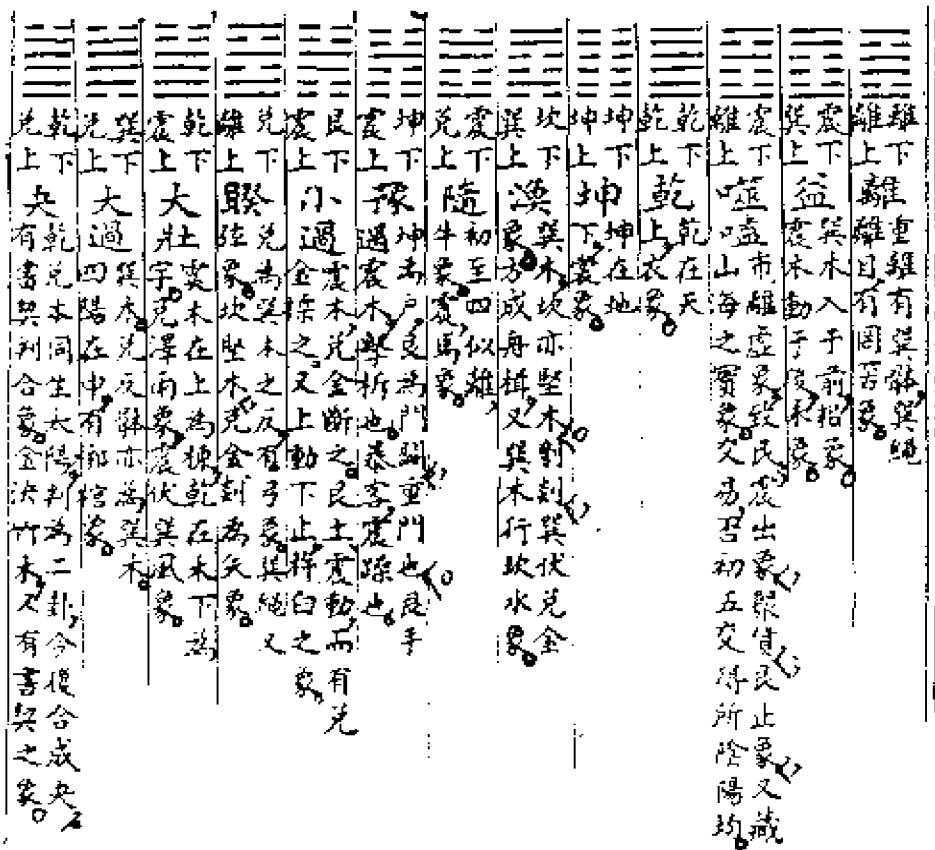 離下
離上
離
重離有巽體巽繩
離目有罔罟象
震下
巽上
益
巽木入于前耜象
震木動于後耒象
震下
離上
噬嗑
市離虛象致民震出象聚貨艮止象又藏
山海之寶象交易否初五交得所陰陽均
乾下
乾上
乾
乾在天
上衣象
坤下
坤上
坤
坤在地
下裳象
坎下
巽上
渙
巽木坎亦堅木刳剡巽伏兌金
象方成舟楫又巽木行坎水象
震下
兌上
隨
初至四似離
牛象震馬象
坤下
震上
豫
坤為戶艮為門闢重門也艮手
遇震木擊柝也暴客震躁也
艮下
震上
小過
震木兌金斷之艮土震動而有兌
金之又上動下止杵臼之象
兌下
離上
睽
兌為巽木之反有弓象巽繩又
弦象坎堅木兌金剡為矢象
乾下
震上
大壯
上震木在上為棟乾在木下為
宇兌澤雨象震伏巽風象
巽下
兌上
大過
巽木兌反體亦為巽木
四陽在中有槨棺象
乾下
兌上
夬
乾兌本同生太陽判為二卦今復合成夬
有書契判合象金決竹木又有書契之象